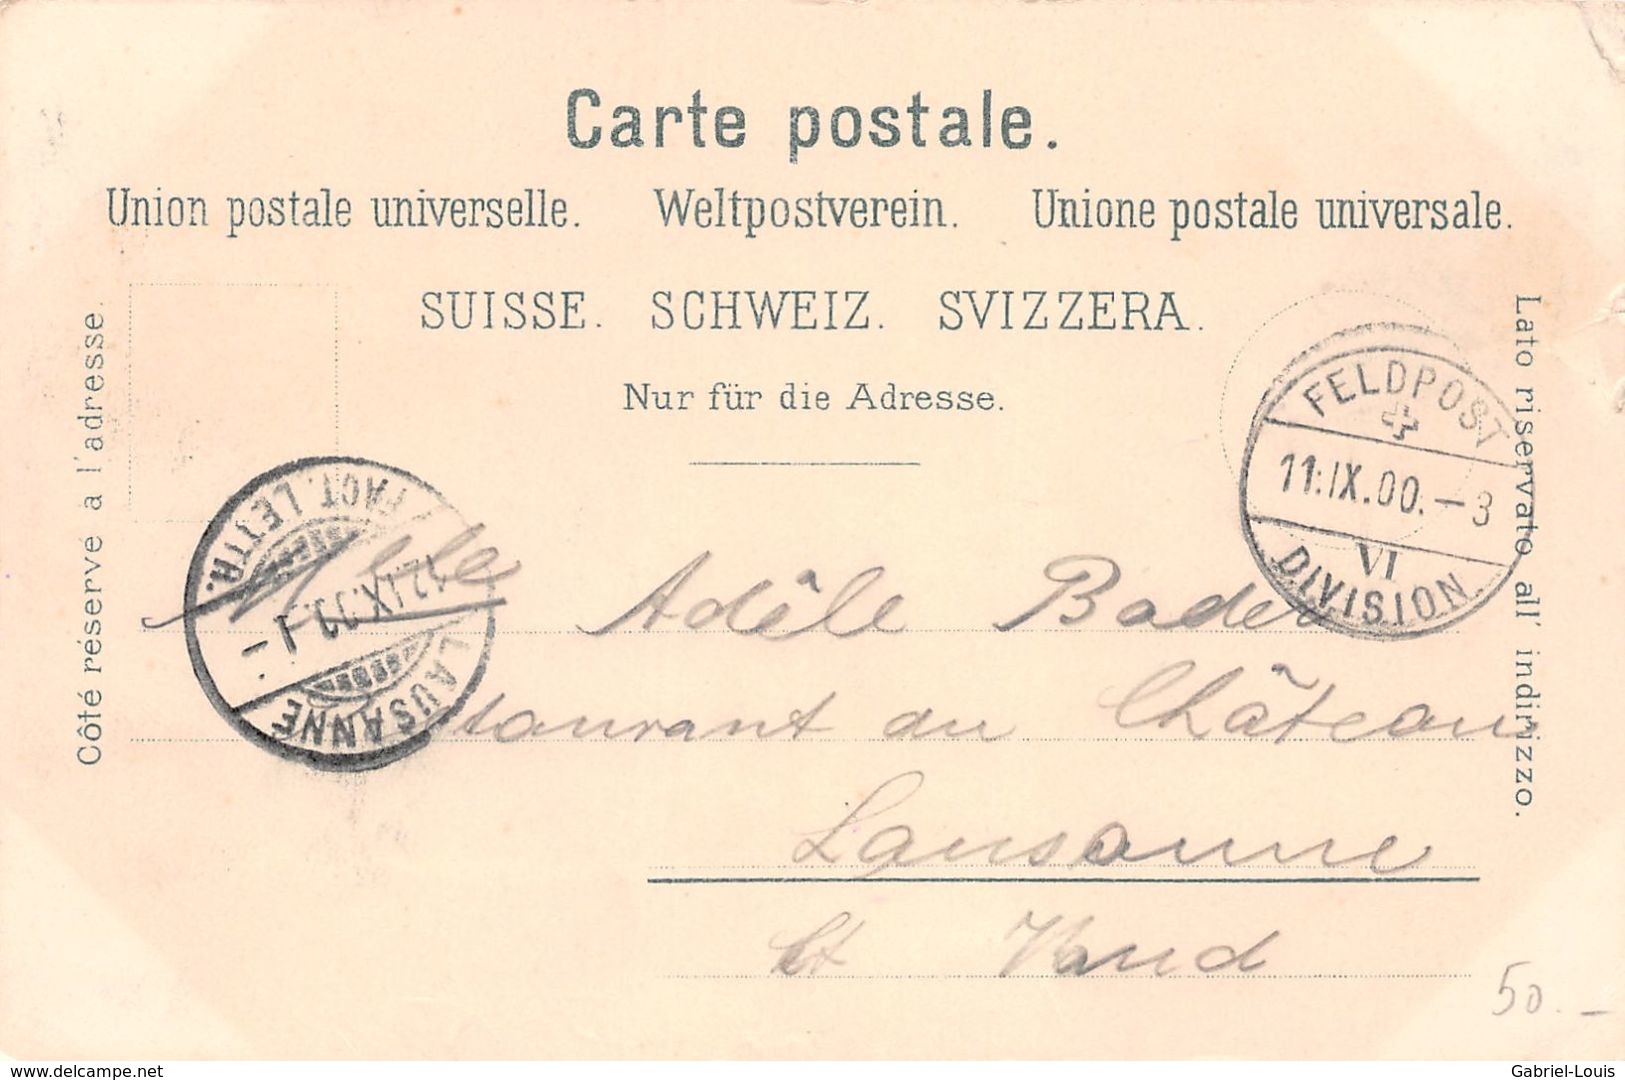 Carte postale.
Union postale universelle. Weltpostverein. Unione postale universale.
SUISSE. SCHWEIZ. SVIZZERA.
Nur für die Adresse.
Côté réservé à l'adresse.
Lato riservato all' indirizzo.
FELDPOST
11.IX.00.-3
VI
DIVISION
FACT. LETTR.
12.IX.00.-1
LAUSANNE
Mlle Adèle Bader
staurant du Château
Lausanne
Ct Vaud
50.-
www.delcampe.net
Gabriel-Louis